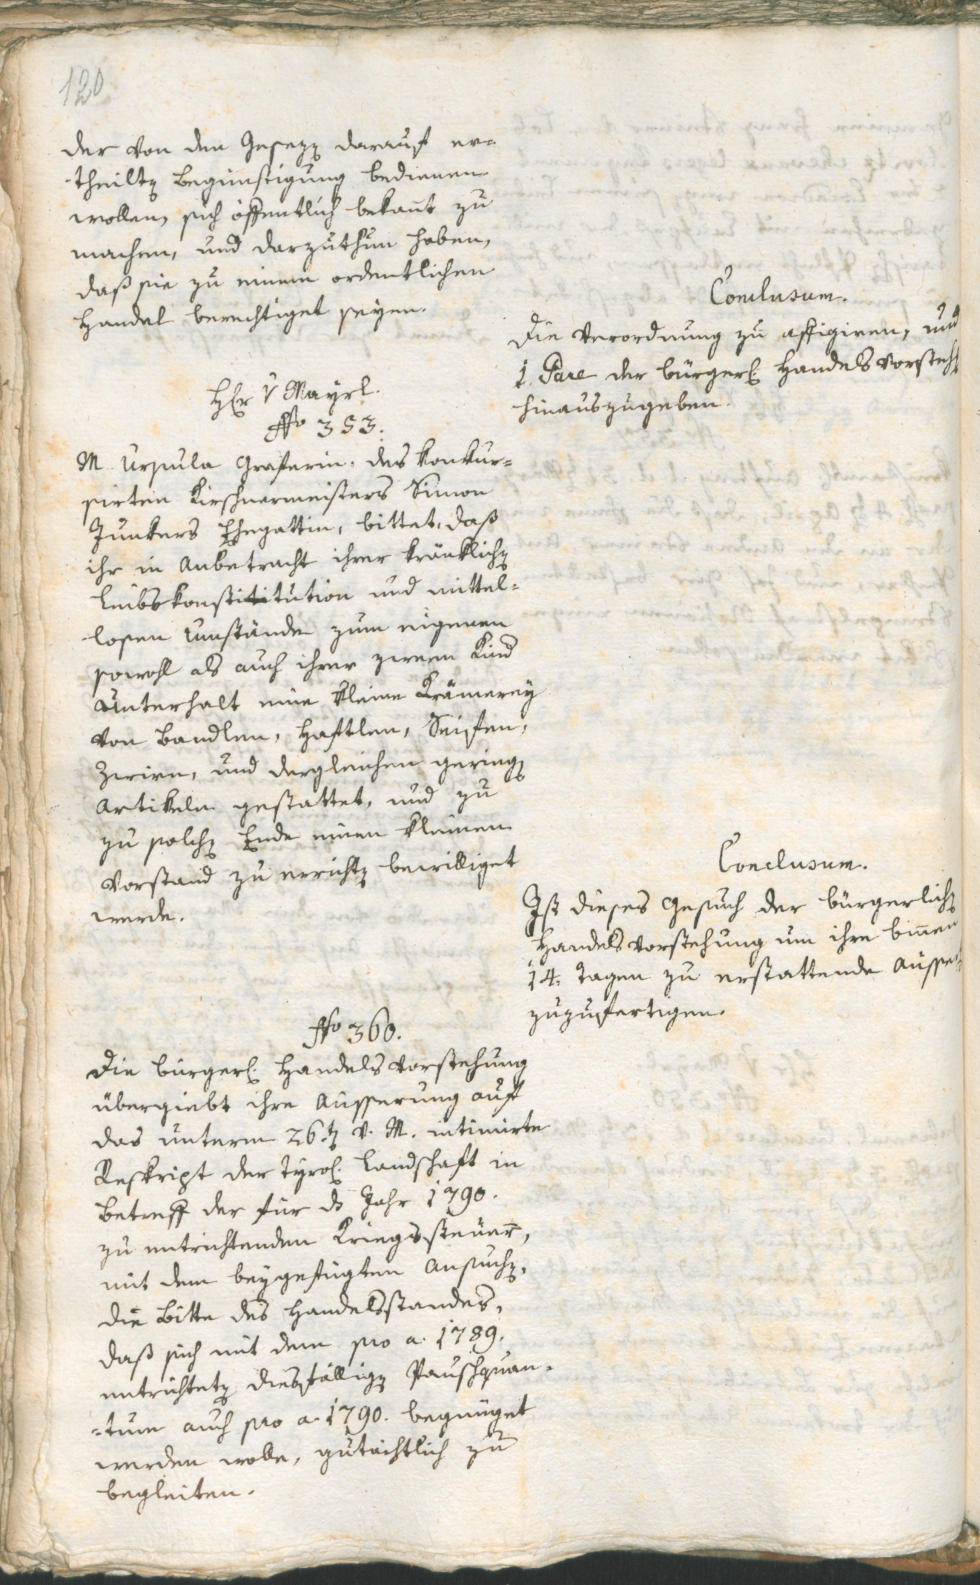 120
der von den Gesezen darauf er-
theilten Begünstigung bedienen
wollen, sich öffentlich bekant zu
machen, und darzuthun haben,
daß sie zu einem ordentlichen
Handel berechtiget seyen.
Conclusum.
Die Verordnung zu affigiren, und
1. Pare der bürgerl. Handelsvorsteh
hinauszugeben.
Hr v Mayrl.
No 353.
M. Ursula Graserin, des konkur-
sirten Kirschnermeisters Simon
Junkers Ehegattin, bittet, daß
ihr in Anbetracht ihrer kränklichen
Leibskonstitution und mittel-
losen Umstände zum eigenen
sowohl als auch ihrer zween Kind
Unterhalt eine kleine Krämerey
von Bandlen, Haftlen, Seifen,
Zwirn, und dergleichen geringen
Artikeln gestattet, und zu
zu solchen Ende einen kleinen
Vorstand zu errichten bewilliget
werde.
Conclusum.
Ist dieses Gesuch der bürgerlichen
Handelsvorstehung um ihre binnen
14. Tagen zu erstattende Äusser
zuzufertigen.
No 360.
Die bürgerl. Handelsvorstehung
übergiebt ihre Äusserung auf
das unterm 26ten v. M. intimirte
Reskript der Tyrol. Landschaft in
Betreff der für ds Jahr 1790.
zu entrichtenden Kriegssteuer,
mit dem beygefügten Ansuchen,
die Bitte des Handelsstandes,
daß sich mit dem pro a. 1789.
entrichteten diesfälligen Pauschquan-
-tum auch pro a. 1790. begnüget
werden wolle, gutächtlich zu
begleiten.